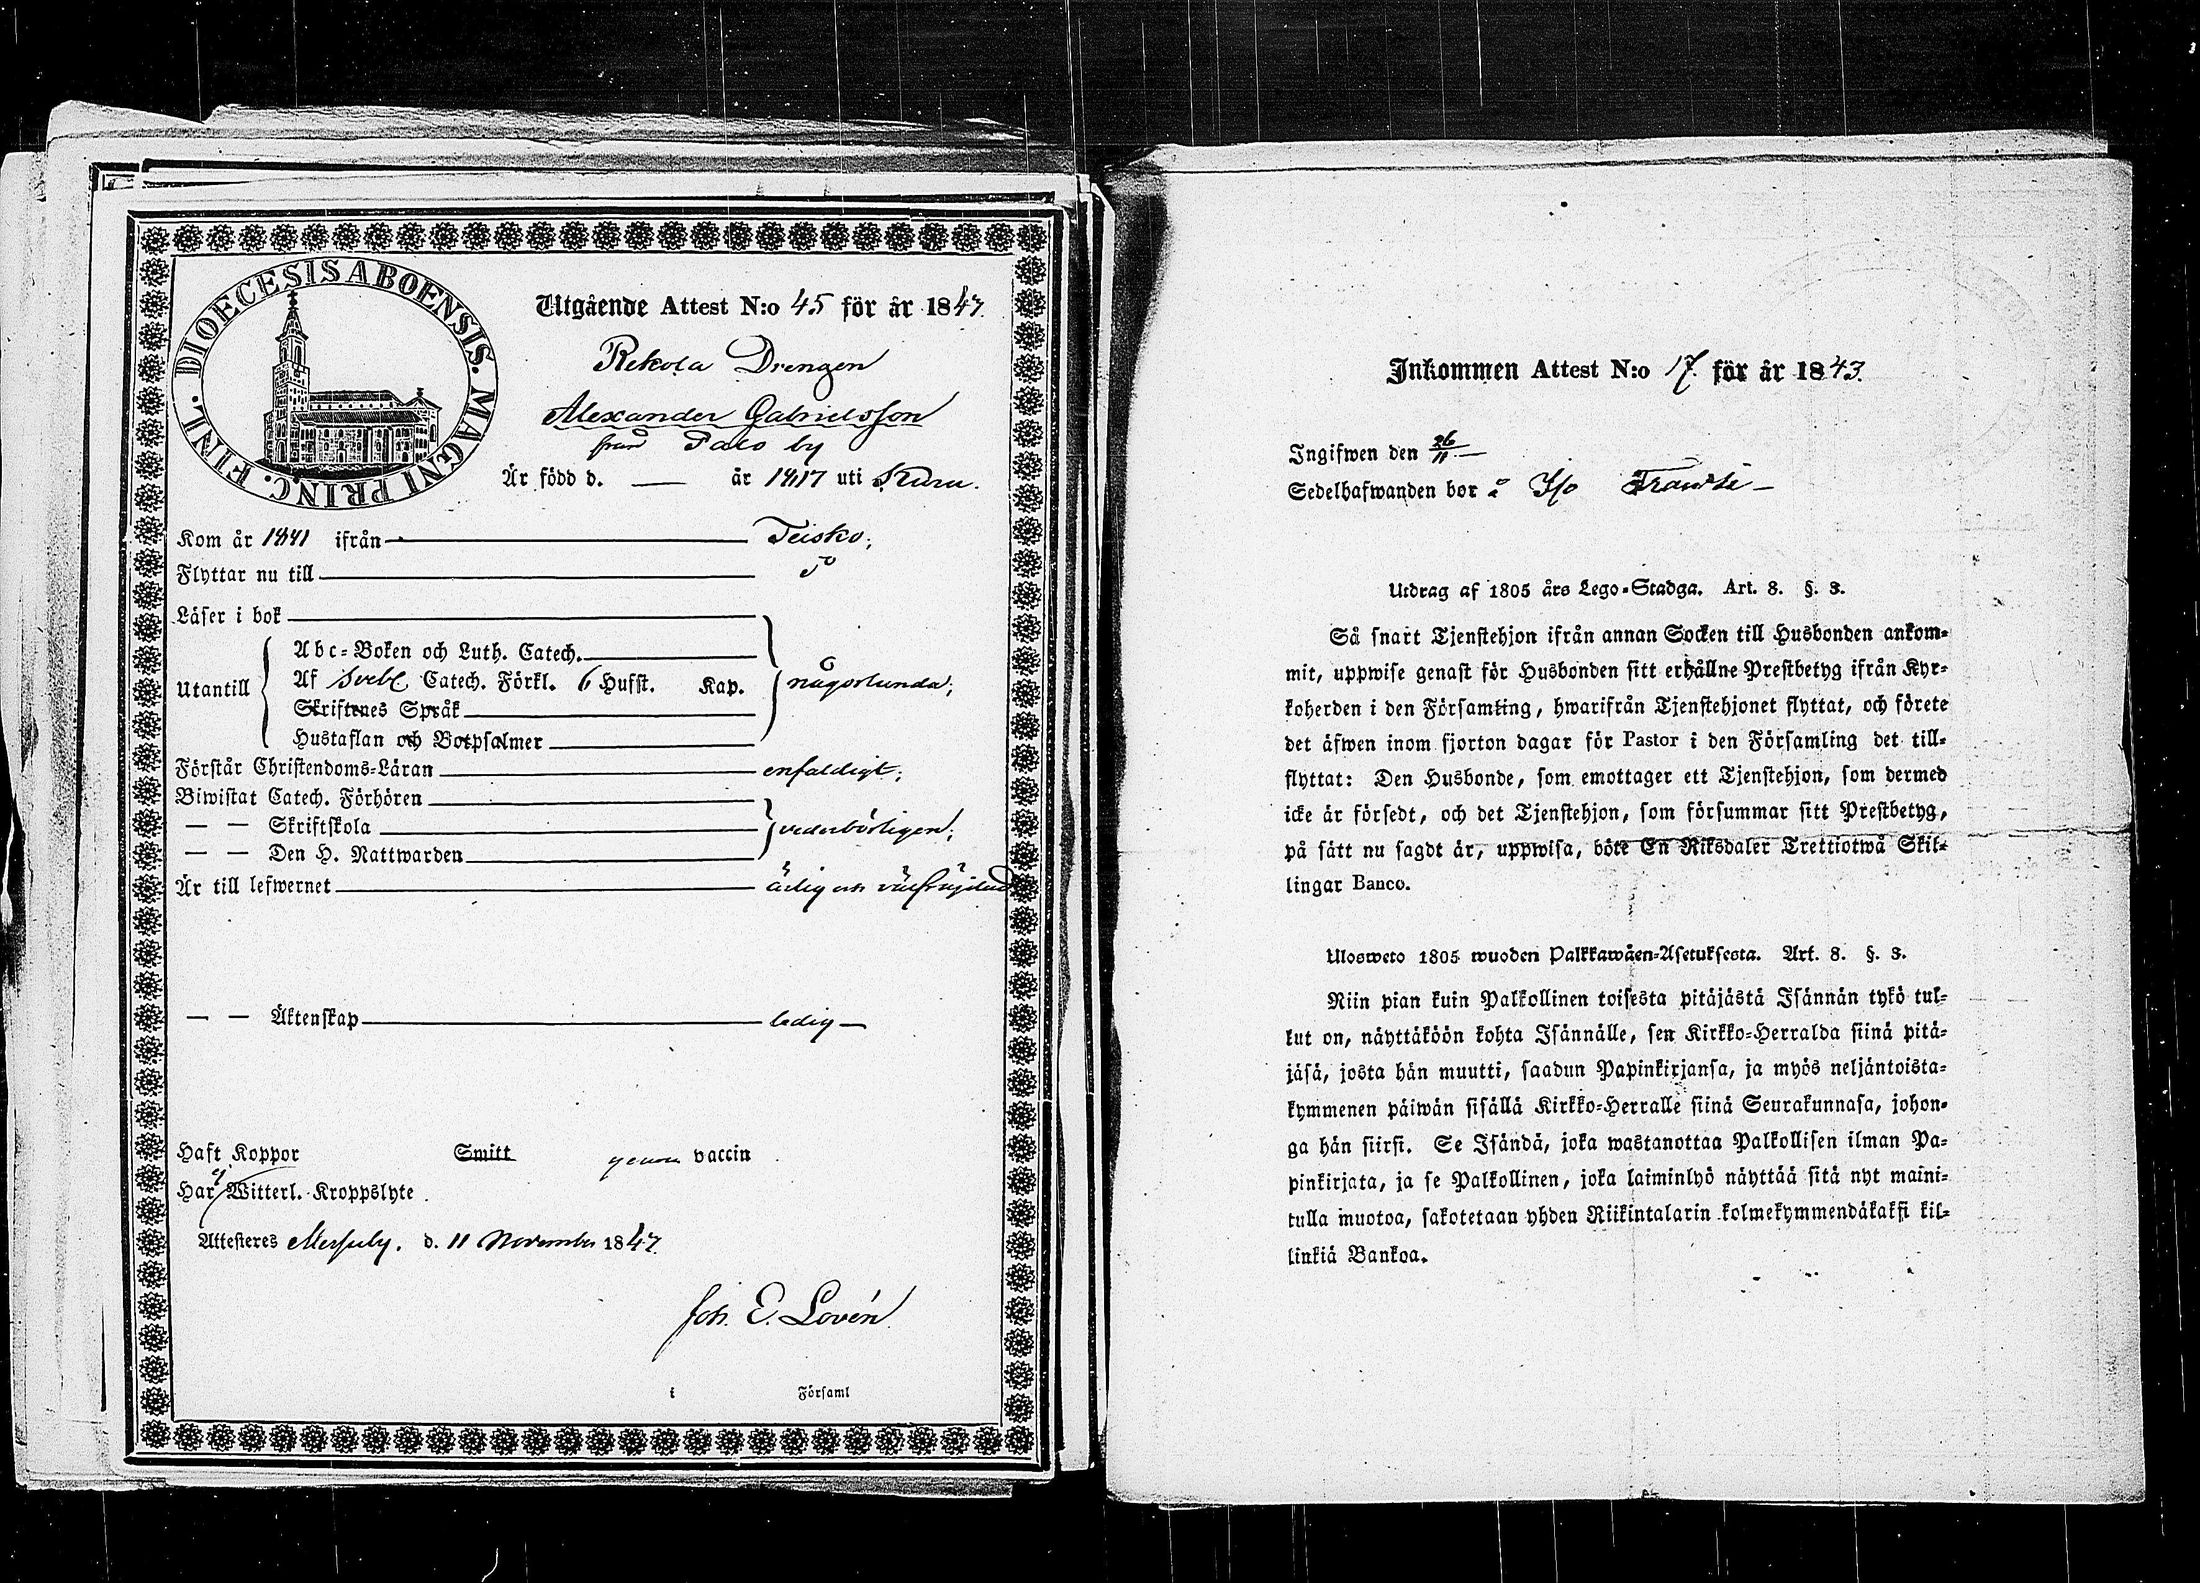 DIOECESIS ABOENSIS. MAGNI PRINC. FINL.
Utgående Attest N:o 45 för år 1847.
Rekola Drengen
Alexander Gabrielsson
från Palo by
Är född d. — år 1817 uti Kuru.
Kom år 1841 ifrån Teisko;
Flyttar nu till
Läser i bok
Abc-Boken och Luth. Catech.
Utantill Af Svebel. Catech. Förkl. 6 Hufst. Kap. någorlunda;
Skriftenes Språk
Hustaflan och Botpsalmer
Förstår Christendoms-Läran enfaldigt;
Biwistat Catech. Förhören
— — Skriftskola vederbörligen;
— — Den H. Nattwarden
Är till lefwernet ärlig och välfrejdad
— — Äktenskap ledig —
Haft Koppor Smitt genom vaccin
Har ej Witterl. Kroppslyte
Attesteres Messuby. d. 11 November 1847.
Joh. E. Lovén
i Församl
Inkommen Attest N:o 17. för år 1843.
Ingifwen den 26/11 —
Sedelhafwanden bor å Iso —
Utdrag af 1805 års Lego-Stadga. Art. 8. §. 3.
Så snart Tjenstehjon ifrån annan Socken till Husbonden ankom-
mit, uppwise genast för Husbonden sitt erhållne Prestbetyg ifrån Kyr-
koherden i den Församling, hwarifrån Tjenstehjonet flyttat, och förete
det äfwen inom fjorton dagar för Pastor i den Församling det till-
flyttat: Den Husbonde, som emottager ett Tjenstehjon, som dermed
icke är försedt, och det Tjenstehjon, som försummar sitt Prestbetyg,
på sätt nu sagdt är, uppwisa, böte En Riksdaler Trettiotwå Skil-
lingar Banco.
Ulosweto 1805 wuoden Palkkawäen-Asetuksesta. Art. 8. §. 3.
Niin pian kuin Palkollinen toisesta pitäjästä Isännän tykö tul-
lut on, näyttäköön kohta Isännälle, sen Kirkko-Herralda siinä pitä-
jäsä, josta hän muutti, saadun Papinkirjansa, ja myös neljäntoista-
kymmenen päiwän sisällä Kirkko-Herralle siinä Seurakunnasa, johon-
ga hän siirsi. Se Isändä, joka wastanottaa Palkollisen ilman Pa-
pinkirjata, ja se Palkollinen, joka laiminlyö näyttää sitä nyt maini-
tulla muotoa, sakotetaan yhden Riikintalarin kolmekymmendäkaksi kil-
linkiä Bankoa.